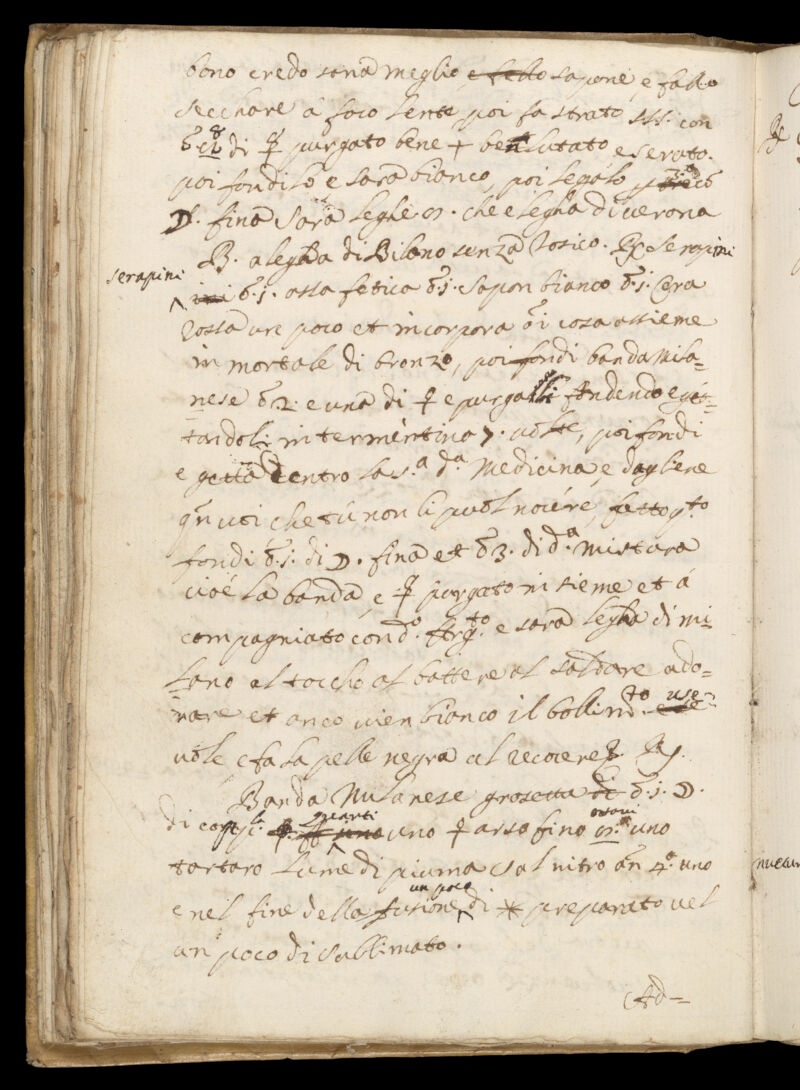 bono credo sarà meglio e fello sapone, e fallo
secchare á foco lente poi fa strato sss. con
di ☿ purgato bene + ben lutato e serato.
poi fondilo e sarà bianco, poi legalo
D. fina Sarà leghe che e legha di verona
B. a legha di Bilano senza tosico. Rx Serapini
serapini
ʒ.j. assa fetica ʒ.j. Sapon bianco ʒ.j. Cera
poco et incorpora cosa assieme
in mortale di bronzo, poi fondi banda Mila-
nese ʒ2. e una di ☿ e purgalli fondendo e git-
tandoli in termentina 7. uolte, poi fondi
e getta dentro la s.ª d.ª Medicina, e dagliene
che tú non li puol nocere, fatto q.to
fondi ʒ.j. di D. fina et ʒ3. di d.ª mistura
cioé la banda, e ☿ purgato insieme et á
compagniato con d.º Arg.to e sarà legha di mi-
lano al toccho al battere al saldare ado-
rare et anco vien bianco il bollim.to use-
uole e fa la pelle negra al recocere. Rx.
Banda Milanese grosetta di ʒ.j. D.
di copp.la quarti uno uno ☿ arso fino uno
tartaro Lume di piuma Sal nitro an 4.º uno
e nel fine della fusione un poco di * preparato vel
un poco di sublimato.
Ad=